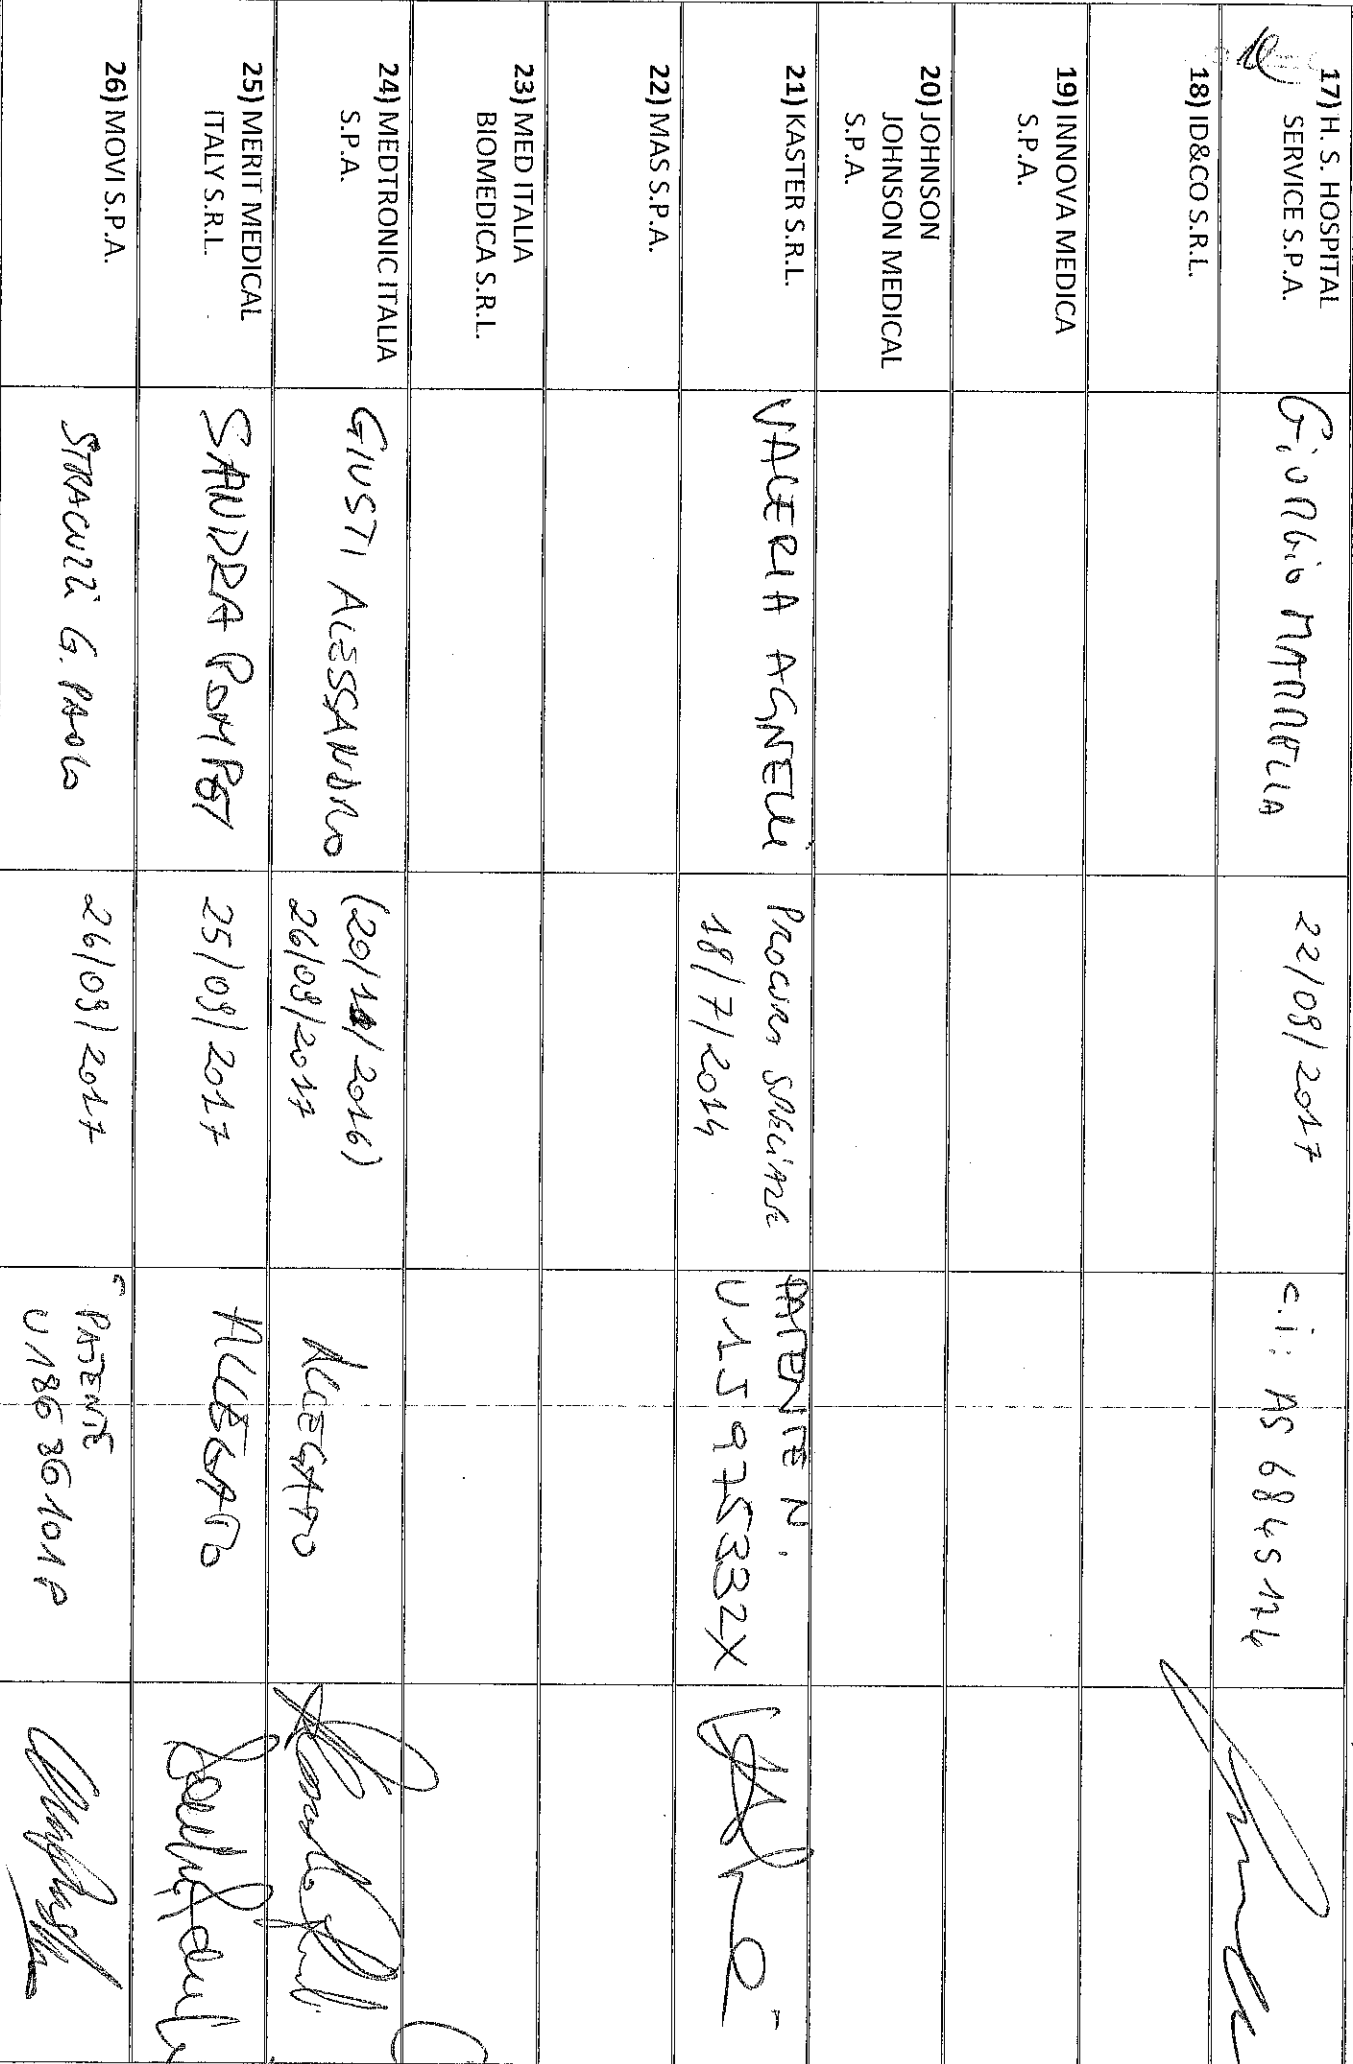 17) H. S. HOSPITAL
SERVICE S.P.A.
Giorgio MARRELLA
22/09/2017
c.i: AS 6849174
18) ID&CO S.R.L.
19) INNOVA MEDICA
S.P.A.
20) JOHNSON
JOHNSON MEDICAL
S.P.A.
21) KASTER S.R.L.
VALERIA AGNELLI
PROCURA SPECIALE
18/7/2014
PATENTE N.
U15975332X
22) MAS S.P.A.
23) MED ITALIA
BIOMEDICA S.R.L.
24) MEDTRONIC ITALIA
S.P.A.
GIUSTI ALESSANDRO
(20/11/2016)
26/09/2017
ALLEGATO
25) MERIT MEDICAL
ITALY S.R.L.
SANDRA
25/09/2017
ALLEGATO
26) MOVI S.P.A.
STRACUZZI G. PAOLO
26/09/2017
PATENTE
U18636101P